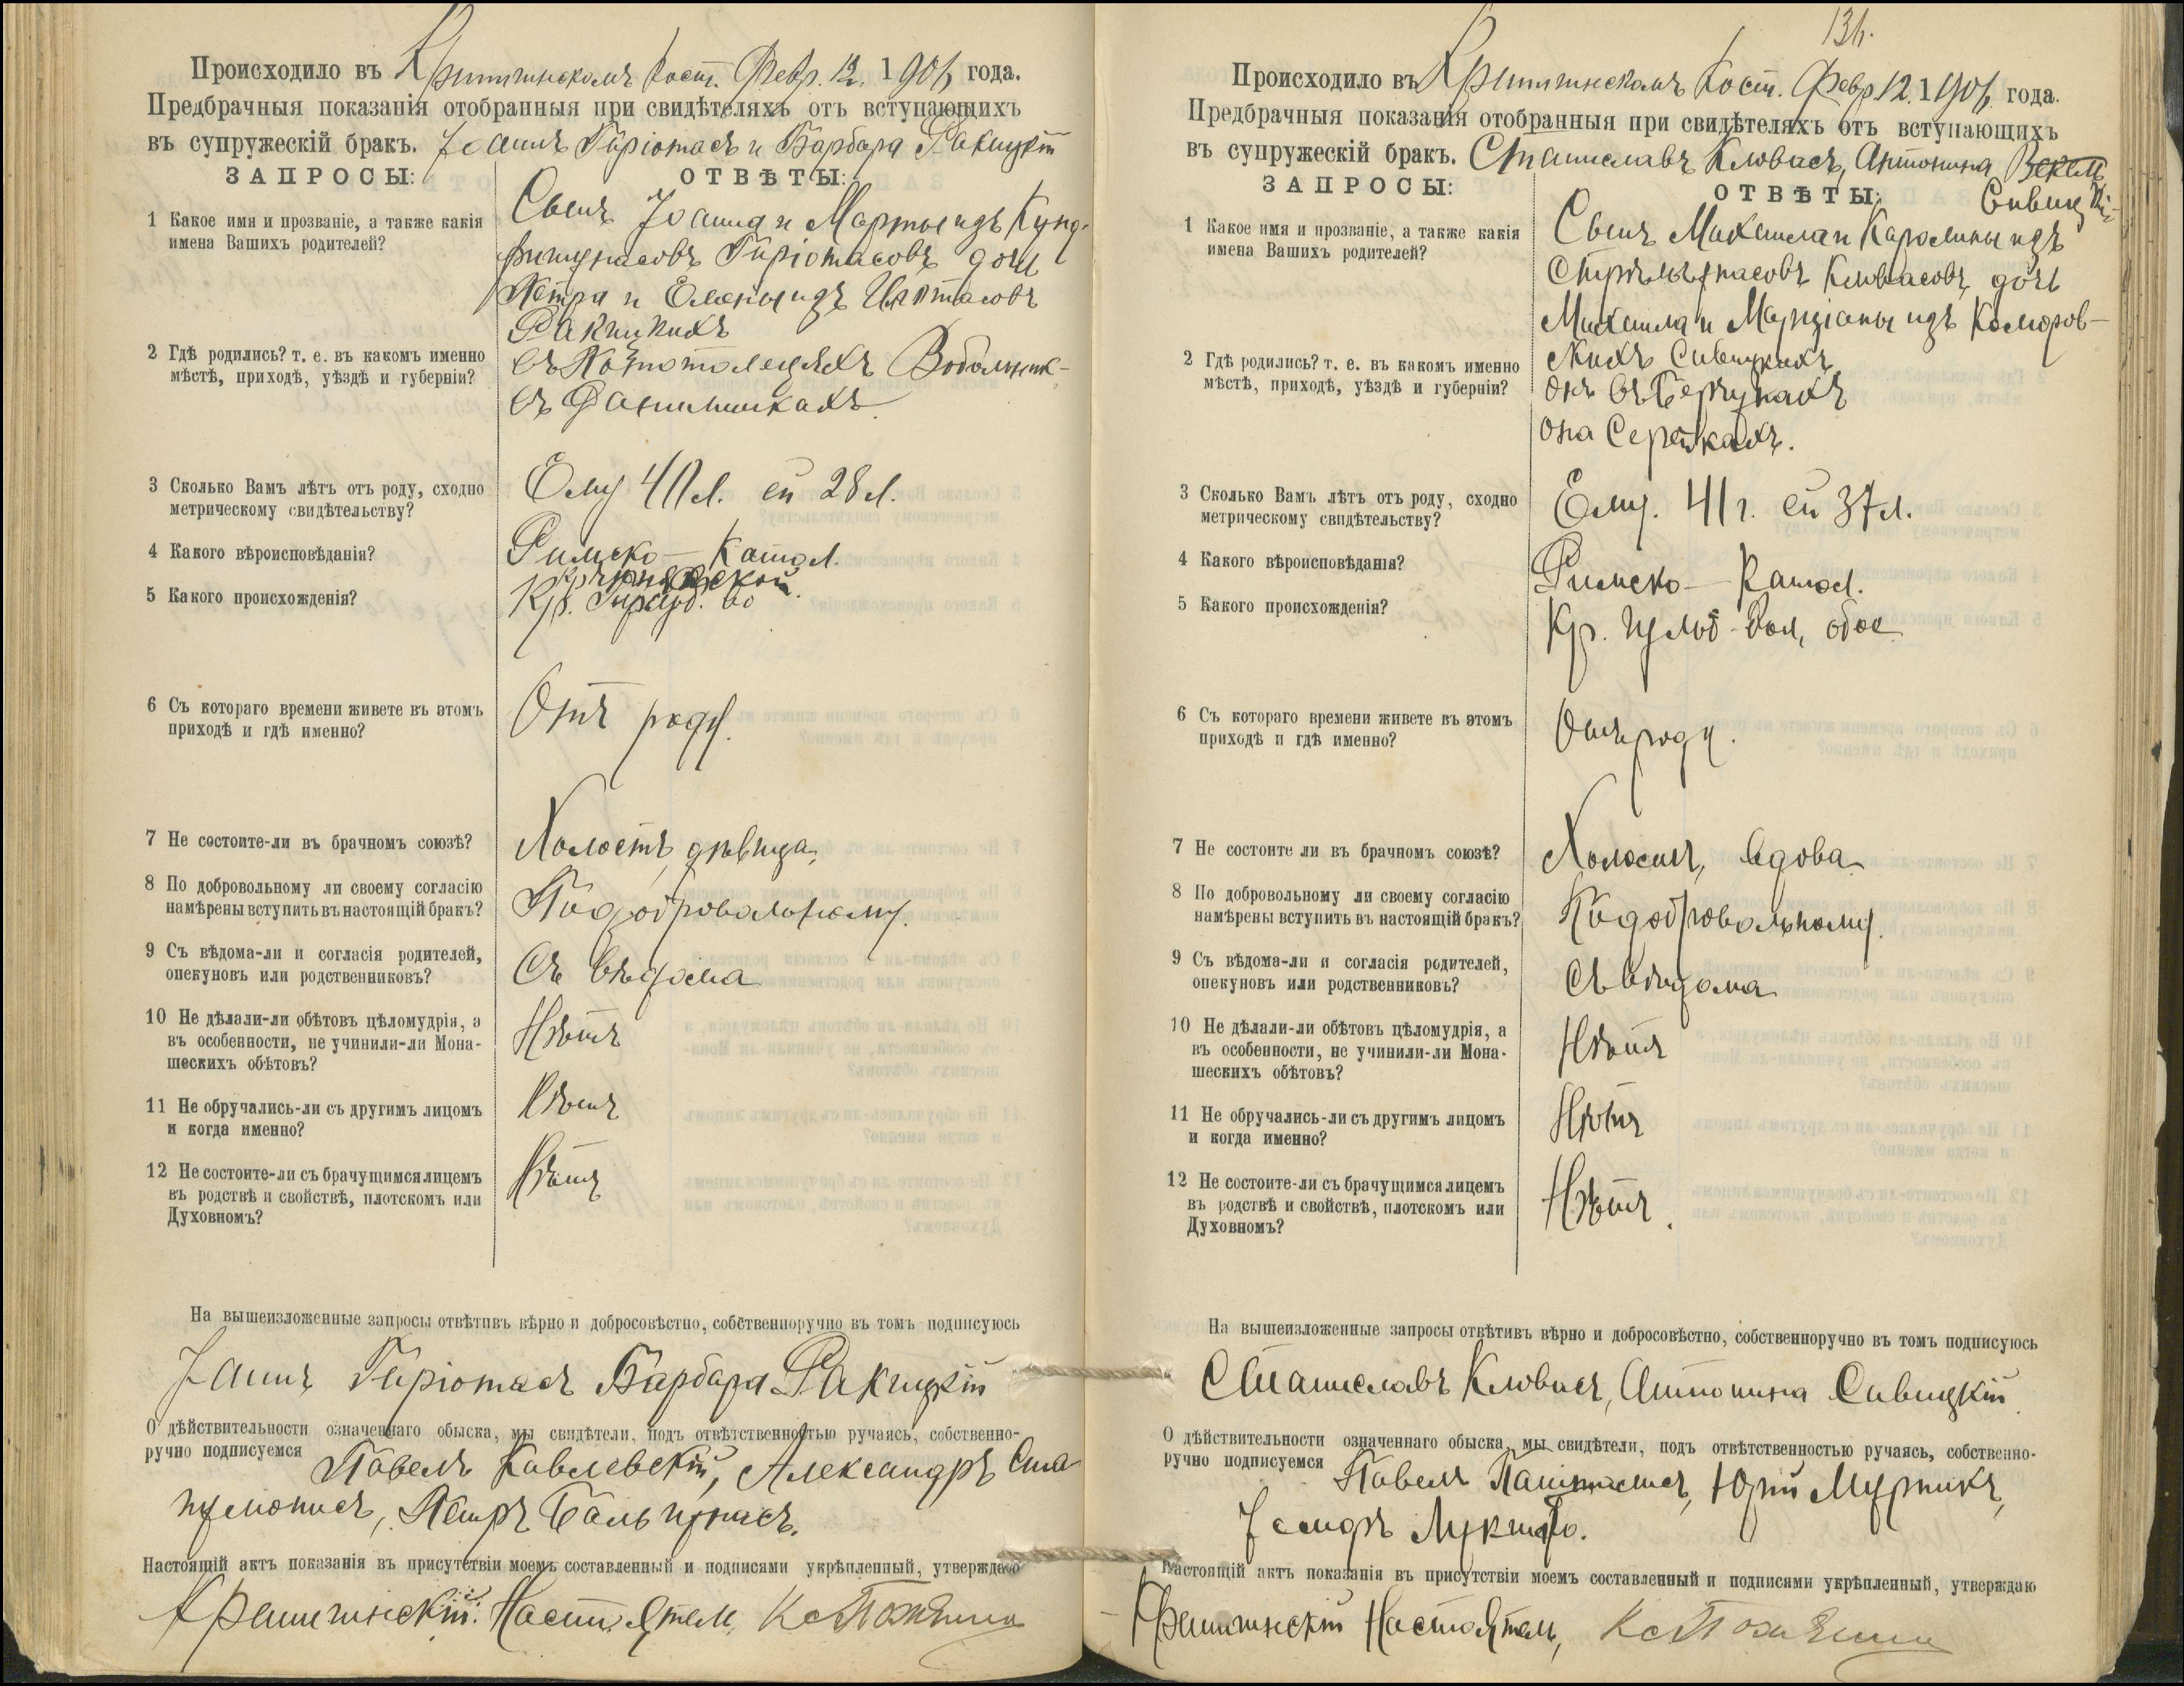 Происходило въ Крыткинскомъ Кост. Февр. 12. 1906 года.
Предбрачныя показанія отобранныя при свидѣтеляхъ отъ вступающихъ
въ супружескій бракъ. Іоаннъ и Барбара Ракицкій
ЗАПРОСЫ: ОТВѢТЫ:
1 Какое имя и прозваніе, а также какія
имена Вашихъ родителей?
Сынъ Іоанна и Марты изъ
дочь
Петра и Елены изъ
Ракицкихъ
2 Гдѣ родились? т. е. въ какомъ именно
мѣстѣ, приходѣ, уѣздѣ и губерніи?
въ
въ Данилишкахъ
3 Сколько Вамъ лѣтъ отъ роду, сходно
метрическому свидѣтельству?
Ему л. ей 28 л.
4 Какого вѣроисповѣданія?
Римско-Катол.
5 Какого происхожденія?
Кр.
6 Съ котораго времени живете въ этомъ
приходѣ и гдѣ именно?
Отъ роду.
7 Не состоите-ли въ брачномъ союзѣ?
Холостъ, дѣвица
8 По добровольному ли своему согласію
намѣрены вступить въ настоящій бракъ?
По добровольному.
9 Съ вѣдома-ли и согласія родителей,
опекуновъ или родственниковъ?
Съ вѣдома
10 Не дѣлали-ли обѣтовъ цѣломудрія, а
въ особенности, не учинили-ли Мона-
шескихъ обѣтовъ?
Нѣтъ
11 Не обручались-ли съ другимъ лицомъ
и когда именно?
Нѣтъ
12 Не состоите-ли съ брачущимся лицемъ
въ родствѣ и свойствѣ, плотскомъ или
Духовномъ?
Нѣтъ
На вышеизложенные запросы отвѣтивъ вѣрно и добросовѣстно, собственноручно въ томъ подписуюсь
Барбара Ракицкій
О дѣйствительности означеннаго обыска, мы свидѣтели, подъ отвѣтственностью ручаясь, собственно-
ручно подписуемся Павелъ Ковлевскій, Александръ
Петръ Бальчунасъ.
Настоящій актъ показанія въ присутствіи моемъ составленный и подписями укрѣпленный, утверждаю
Настоятель,
131.
Происходило въ Кост. Февр. 12. 1906 года.
Предбрачныя показанія отобранныя при свидѣтеляхъ отъ вступающихъ
въ супружескій бракъ. Станиславъ Кловасъ, Антонина
Сивицкій
ЗАПРОСЫ: ОТВѢТЫ:
1 Какое имя и прозваніе, а также какія
имена Вашихъ родителей?
Сынъ Михаила и Каролины изъ
Кловасовъ, дочь
Михаила и Марціаны изъ Коморов-
скихъ Сивицкихъ
2 Гдѣ родились? т. е. въ какомъ именно
мѣстѣ, приходѣ, уѣздѣ и губерніи?
онъ въ
она
3 Сколько Вамъ лѣтъ отъ роду, сходно
метрическому свидѣтельству?
Ему. 41 г. ей 37 л.
4 Какого вѣроисповѣданія?
Римско-Катол.
5 Какого происхожденія?
Кр. вол, обое
6 Съ котораго времени живете въ этомъ
приходѣ и гдѣ именно?
Отъ роду.
7 Не состоите ли въ брачномъ союзѣ?
Холостъ, вдова
8 По добровольному ли своему согласію
намѣрены вступить въ настоящій бракъ?
По добровольному.
9 Съ вѣдома-ли и согласія родителей,
опекуновъ или родственниковъ?
Съ вѣдома
10 Не дѣлали-ли обѣтовъ цѣломудрія, а
въ особенности, не учинили-ли Мона-
шескихъ обѣтовъ?
Нѣтъ
11 Не обручались-ли съ другимъ лицомъ
и когда именно?
Нѣтъ
12 Не состоите-ли съ брачущимся лицемъ
въ родствѣ и свойствѣ, плотскомъ или
Духовномъ?
Нѣтъ.
На вышеизложенные запросы отвѣтивъ вѣрно и добросовѣстно, собственноручно въ томъ подписуюсь
Станиславъ Кловасъ, Антонина Сивицкій
О дѣйствительности означеннаго обыска, мы свидѣтели, подъ отвѣтственностью ручаясь, собственно-
ручно подписуемся Павелъ Юрій Мурникъ,
Настоящій актъ показанія въ присутствіи моемъ составленный и подписями укрѣпленный, утверждаю
Настоятель,